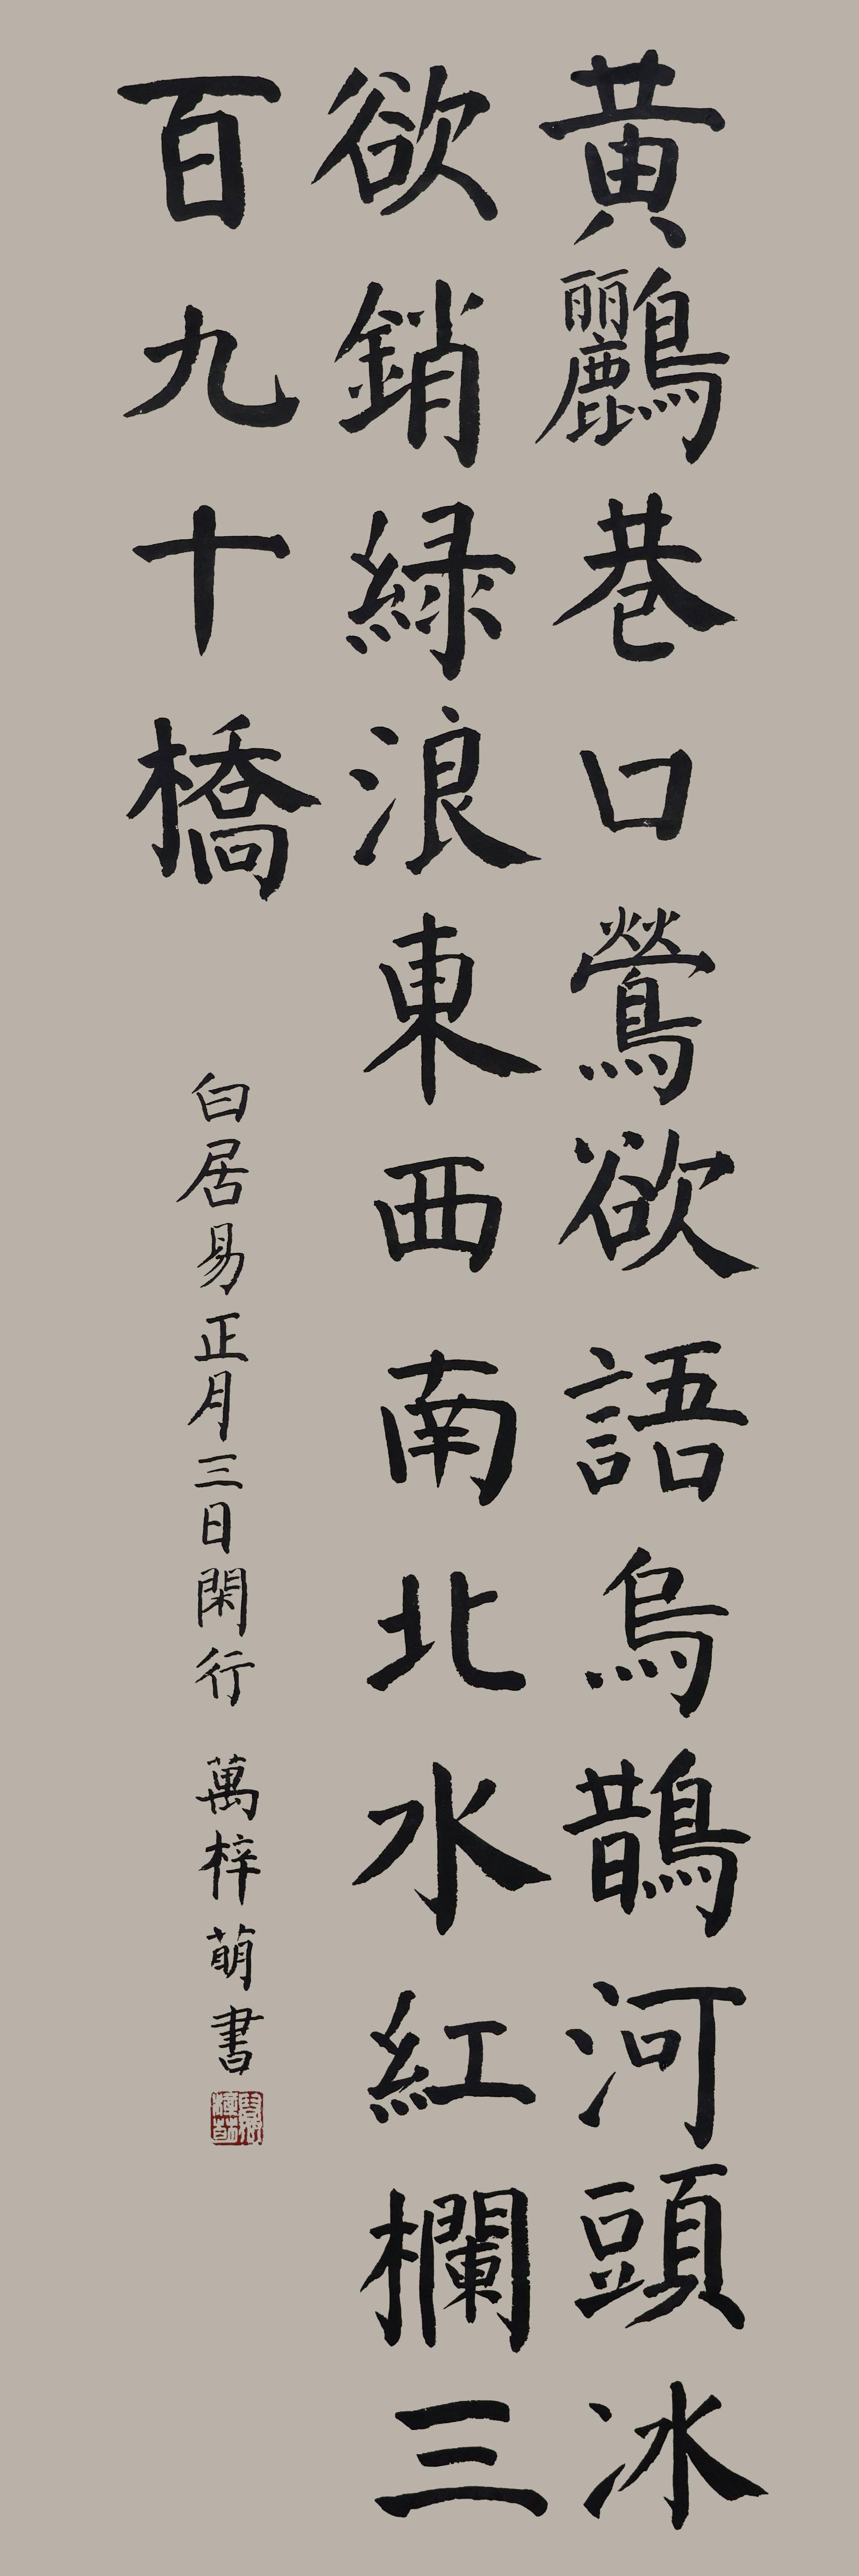 黄鸝巷口鶯欲語烏鵲河頭冰
欲銷緑浪東西南北水紅欄三
百九十橋
白居易正月三日閑行 萬梓萌書